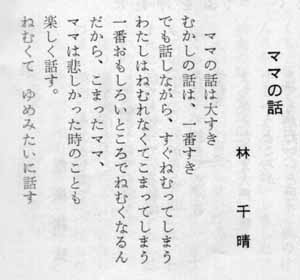 ママの話
林 千晴
ママの話は大すき
むかしの話は、一番すき
でも話しながら、すぐねむってしまう
わたしはねむれなくてこまってしまう
一番おもしろいところでねむくなるん
だから、こまったママ、
ママは悲しかった時のことも
楽しく話す。
ねむくて ゆめみたいに話す